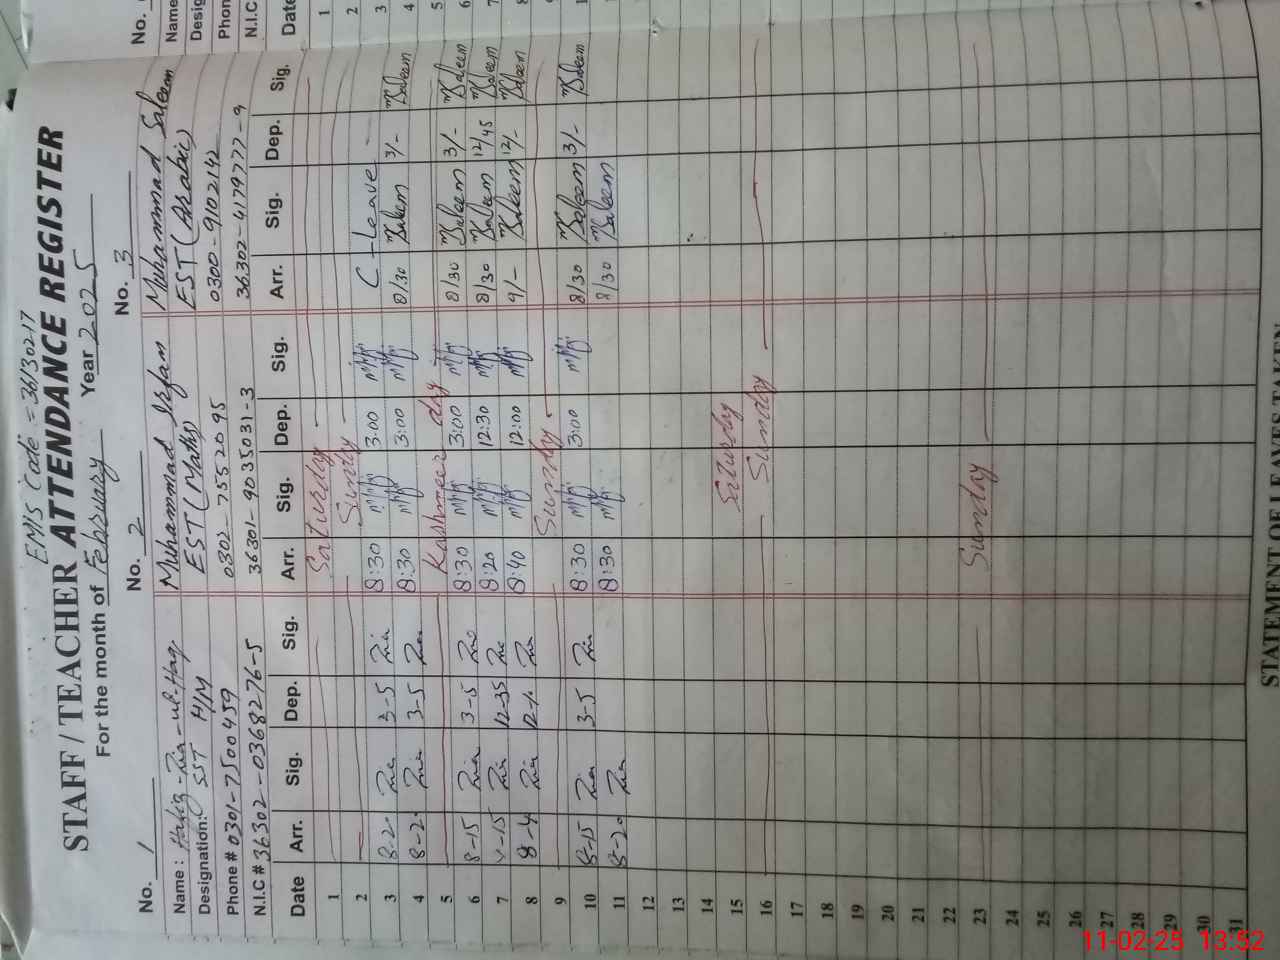 EMIS Code = 36130217
STAFF / TEACHER ATTENDANCE REGISTER
For the month of February Year 2025
No. 1 No. 2 No. 3
Name : Hafiz Zia-ul-Haq Muhammad Irfan Muhammad Saleem
Designation: SST H/M EST (Maths) EST (Arabic)
Phone # 0301-7500459 0302-7552095 0300-9102142
N.I.C # 36302-0368276-5 36301-9035031-3 36302-4179777-9
Date Arr. Sig. Dep. Sig. Arr. Sig. Dep. Sig. Arr. Sig. Dep. Sig.
1 Saturday
2 Sunday
3 8-20 Zia 3-5 Zia 8:30 3:00 C-Leave
4 8-20 Zia 3-5 Zia 8:30 3:00 8/30 MSaleem 3/- MSaleem
5 Kashmeer day
6 8-15 Zia 3-5 Zia 8:30 3:00 8/30 MSaleem 3/- MSaleem
7 8-15 Zia 12-35 Zia 8:20 12:30 8/30 MSaleem 12/45 MSaleem
8 Zia Zia 8:40 12:00 9/- MSaleem 12/- MSaleem
9 Sunday
10 8-15 Zia 3-5 Zia 8:30 3:00 8/30 MSaleem 3/- MSaleem
11 8-20 Zia 8:30 8/30 MSaleem
12
13
14
15 Saturday
16 Sunday
17
18
19
20
21
22
23 Sunday
24
25
26
27
28
29
30
31
STATEMENT OF LEAVES TAKEN
No.
Name
Desig
Phon
N.I.C
Date
1
2
3
4
5
6
7
8
9
11-02-25 13:52